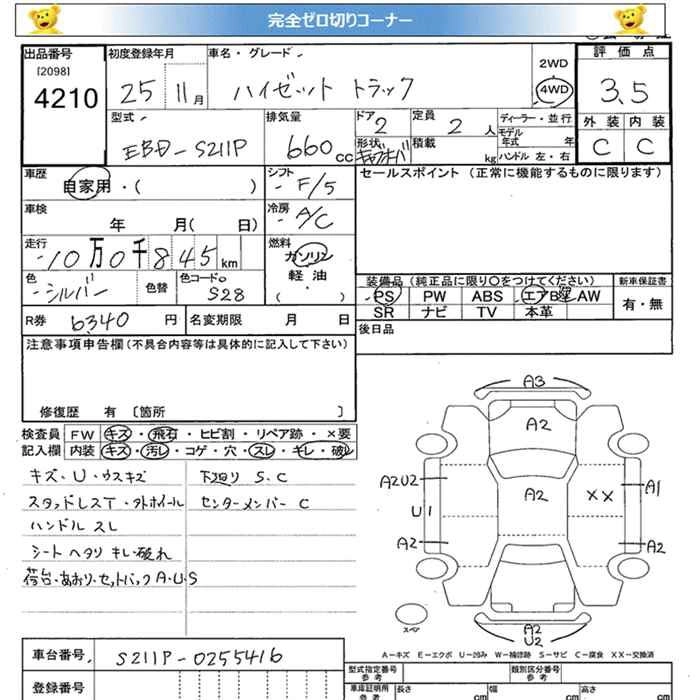 完全ゼロ切りコーナー
出品番号 初度登録年月 車名・グレード 評価点
[2098]
4210 25 11月 ハイゼット トラック 2WD 4WD 3.5
型式 排気量 ドア 定員 ディーラー・並行 外装 内装
EBD-S211P 660cc 2 2人 モデル年式 年 C C
形状 キャブオーバ 積載 kg ハンドル 左・右
車歴 シフト セールスポイント (正常に機能するものに限ります)
自家用・( ) F/5
車検 冷房
年 月( 日) A/C
走行 燃料
10万0千845km ガソリン
色 シルバー 色替 色コードNo S28 軽油
( ・ )
装備品 (純正品に限り○をつけてください) 新車保証書
PS PW ABS エアB AW 有・無
SR ナビ TV 本革
R券 6340円 名変期限 月 日 後日品
注意事項申告欄(不具合内容等は具体的に記入して下さい)
修復歴 有 〔箇所 〕
検査員 FW キズ・飛石・ヒビ割・リペア跡・×要
記入欄 内装 キズ・汚レ・コゲ・穴・スレ・キレ・破レ
キズ・U・ウスキズ 下廻り S.C
スタッドレスT・タトホイール センターメンバー C
ハンドル スレ
シート ヘタリ キレ 破れ
荷台・あおり・セットバック A・U・S
A3
A2
A2U2 A2 ×× A1
U1
A2 A2
A2
U2
スペア
A-キズ E-エクボ U-凹み W-補修跡 S-サビ C-腐食 XX-交換済
車台番号 S211P-0255416
登録番号
型式指定番号 参考 類別区分番号 参考
車庫証明用 参考 長さ cm 幅 cm 高さ cm